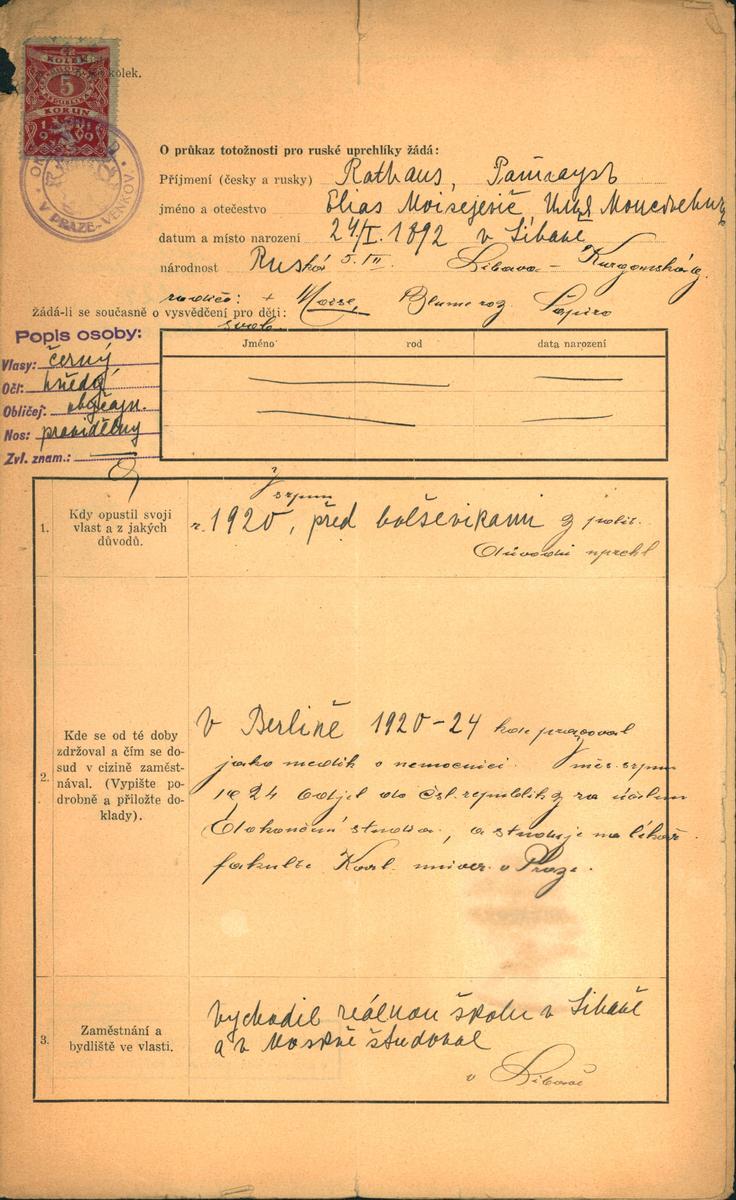 KOLEK
5
KORUN
1919
kolek.
V PRAZE-VENKOV
O průkaz totožnosti pro ruské uprchlíky žádá:
Příjmení (česky a rusky) Rathaus, Ратгаузъ
jméno a otečestvo Elias Moisejevič
datum a místo narození 24/I. 1892 v Libavě
národnost Ruská Libava - Kurgonská g.
rodiče: + Moise, Blume roz. Šapiro
Žádá-li se současně o vysvědčení pro děti:
svob.
Popis osoby:
Vlasy: černý
Oči: hnědá
Obličej: obyčejn.
Nos: pravidělny
Zvl. znam.: —
Jméno rod data narození
1. Kdy opustil svoji vlast a z jakých důvodů.
srpnu
r. 1920, před bolševikami z polit.
důvodů uprchl
2. Kde se od té doby zdržoval a čím se dosud v cizině zaměstnával. (Vypište podrobně a přiložte doklady).
V Berlině 1920-24 kde pracoval
jako medik v nemocnici. měs. srpnu
1924 odjel do čsl. republiky za účelem
dokončení studia, a studuje na lékař.
fakultě Karl. univer. v Praze.
3. Zaměstnání a bydliště ve vlasti.
Vychodil reálnou školu v Libavě
a v Moskvě študoval
v Libavě